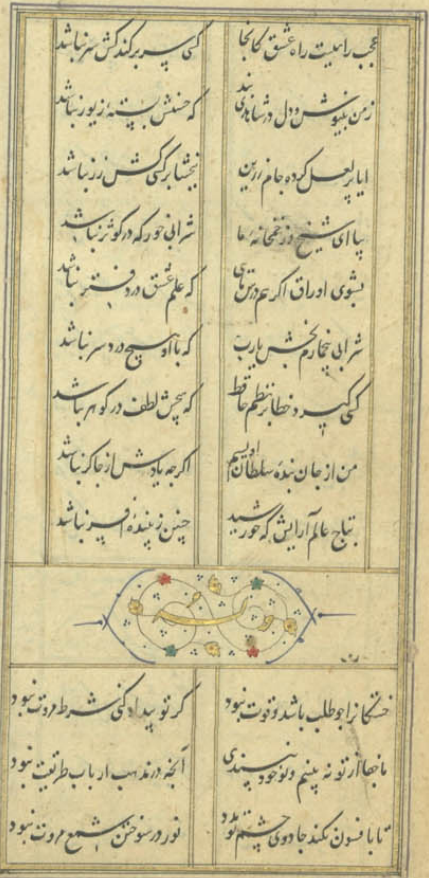 عجب راهیست راه عشق کانجا
کسی سر بر کند کش سر نباشد
ز من بنیوش و دل در شاهدی بند
که حسنش بسته زیور نباشد
ایا پر لعل کرده جام زرین
ببخشا بر کسی کش زر نباشد
بیا ای شیخ و از خمخانه ما
شرابی خور که در کوثر نباشد
بشوی اوراق اگر هم درس مایی
که علم عشق در دفتر نباشد
شرابی بی خمارم بخش یا رب
که با او هیچ درد سر نباشد
کسی گیرد خطا بر نظم حافظ
که هیچش لطف در گوهر نباشد
من از جان بنده سلطان اویسم
اگرچه یادش از چاکر نباشد
بتاج عالم آرایش که خورشید
چنین زیبنده افسر نباشد
وله
خستگان را چو طلب باشد و قوت نبود
گر تو بیداد کنی شرط مروت نبود
ما جفا از تو نه بینیم و تو خود نپسندی
آنچه در مذهب ارباب طریقت نبود
تا بافسون نکند جادوی چشم تو مدد
نور در سوختن شمع مروت نبود